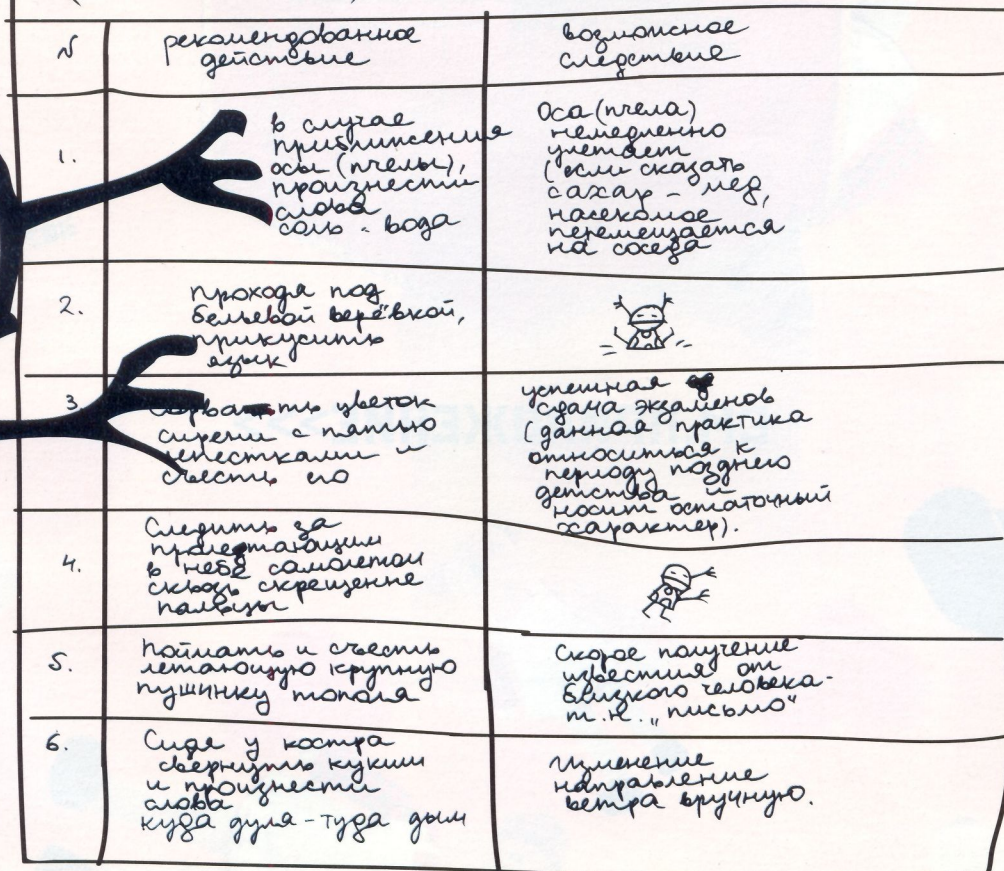 N
рекомендованное
действие
возможное
следствие
1.
в случае
приближения
осы (пчелы),
произнести
слова
соль - вода
Оса (пчела)
немедленно
улетает
(если сказать
сахар - мед,
насекомое
перемещается
на соседа
2.
проходя под
бельевой верёвкой,
прикусить
язык
3
сорвать цветок
сирени с пятью
лепестками и
съесть его
успешная
сдача экзаменов
(данная практика
относиться к
периоду позднего
детства и
носит остаточный
характер).
4.
Следить за
пролетающим
в небе самолетом
сквозь скрещенне
пальцы
5.
поймать и съесть
летающую крупную
пушинку тополя
Скорое получение
известия от
близкого человека -
т.н. „письмо"
6.
Сидя у костра
свернуть кукиш
и произнести
слова
куда дуля - туда дым
Изменение
направление
ветра вручную.